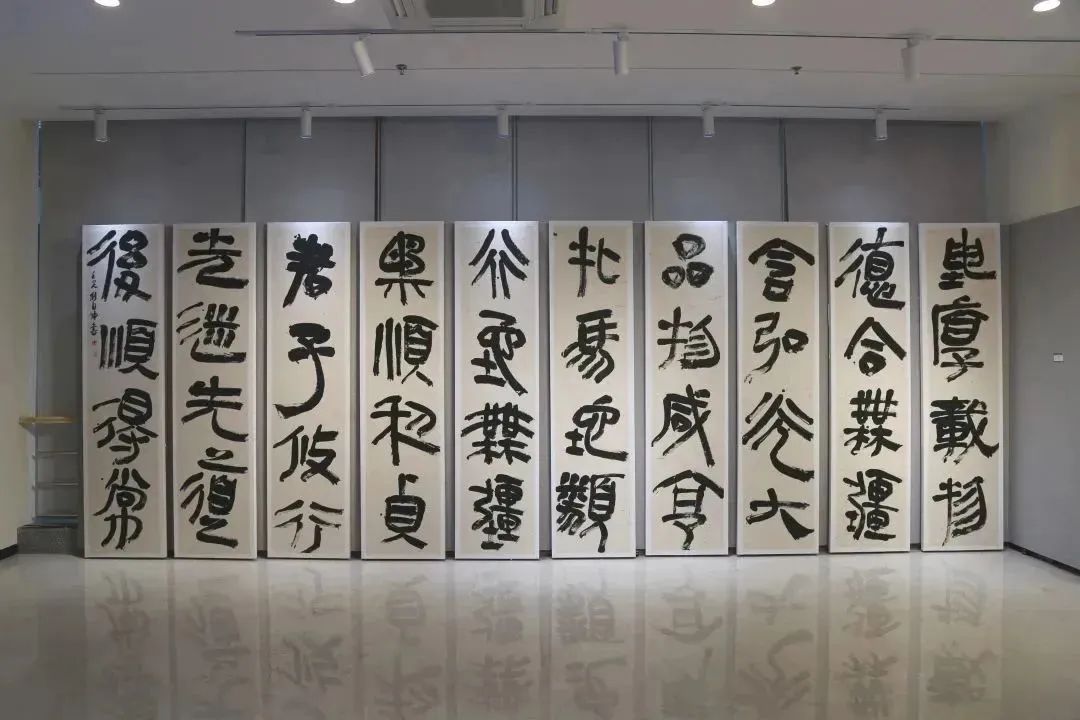 坤厚載物
德合無疆
含弘光大
品物咸亨
牝馬地類
行地無疆
柔順利貞
君子攸行
先迷失道
後順得常